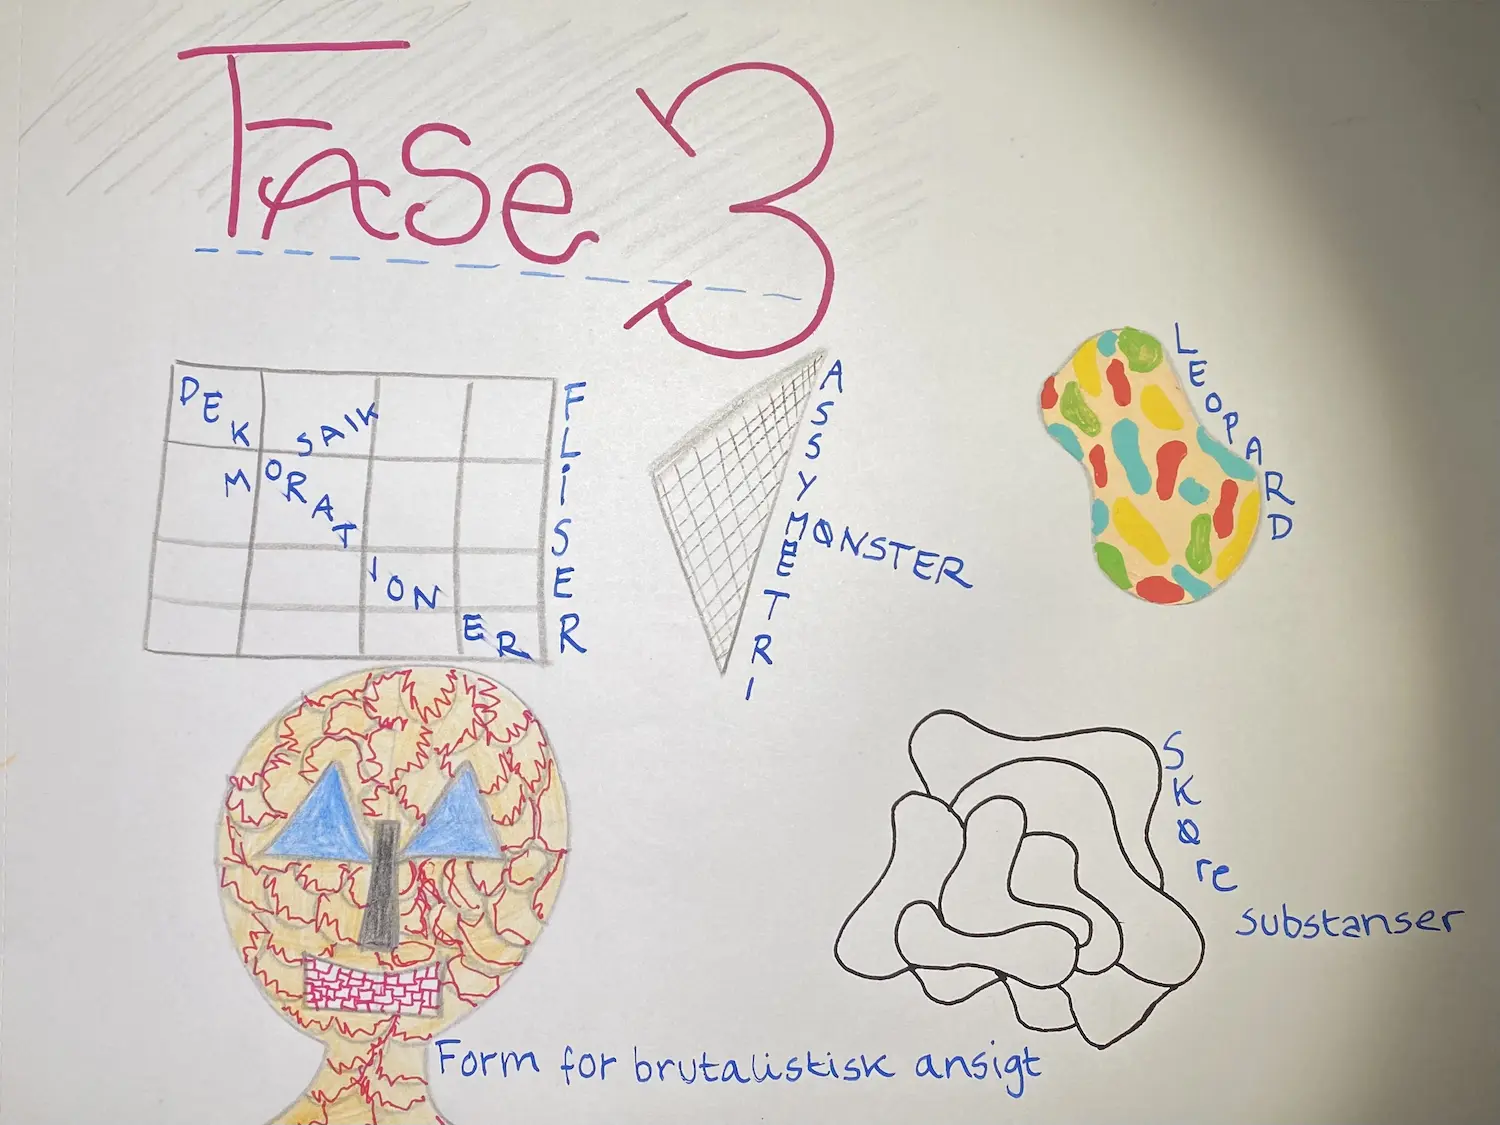 FASe 3
DEKORATIONER
MOSAIK
FLiSER
ASSYMETRI
MØNSTER
LEOPARD
SKØre
substanser
Form for brutalistisk ansigt